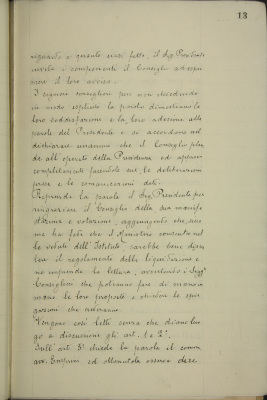 13
riguardo a quanto viesi fatto, il Sig. Presidente
invita i componenti il Consiglio ad esser
nare il loro avviso.
I signori consiglieri pur non chiedendo
in modo esplicito la parola dimostrano la
loro soddisfazione e la loro adesione alle
parole del Presidente e si accordano nel
dichiarare unanimi che il Consiglio plau
de all'operato della Presidenza ed approva
completamente facendole sue, le deliberazioni
prese e le comunicazioni date.
Riprende la parola il Sig. Presidente per
ringraziare il Consiglio della sua manife
stazione e votazione, aggiungendo che, sicco
me ha fatto che il Ministro consenta nel
le vedute dell'Istituto sarebbe bene discu
tere il regolamento delle liquidazioni e
ne imprende la lettura, avvertendo i Sigg.
Consiglieri che potranno fare di mano a
mano le loro proposte e chiedere le spie
gazioni che vorranno.
Vengono così letti senza che diano luo
go a discussione gli art. 1 e 2.
Sull'art. 3° chiede la parola il comm.
avv. ed ottenutala osserva dere